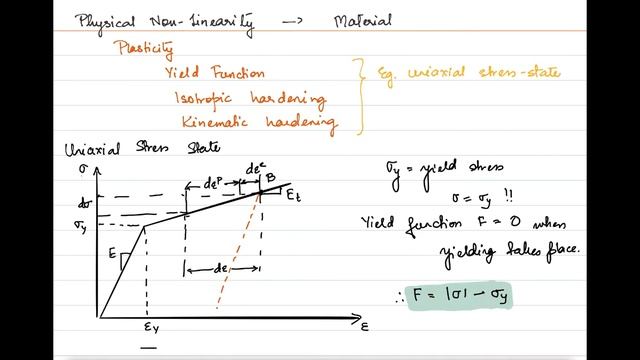 Physical Non-Linearity → Material
Plasticity
Yield Function
Isotropic hardening
Kinematic hardening
Eg. uniaxial stress-state
Uniaxial Stress State
σ
dεᵉ
dεᵖ
B
dσ
E_t
σ_y
E
dε
ε_y
ε
σ_y = yield stress
σ = σ_y !!
Yield function F = 0 when
yielding takes place.
∴ F = |σ| - σ_y